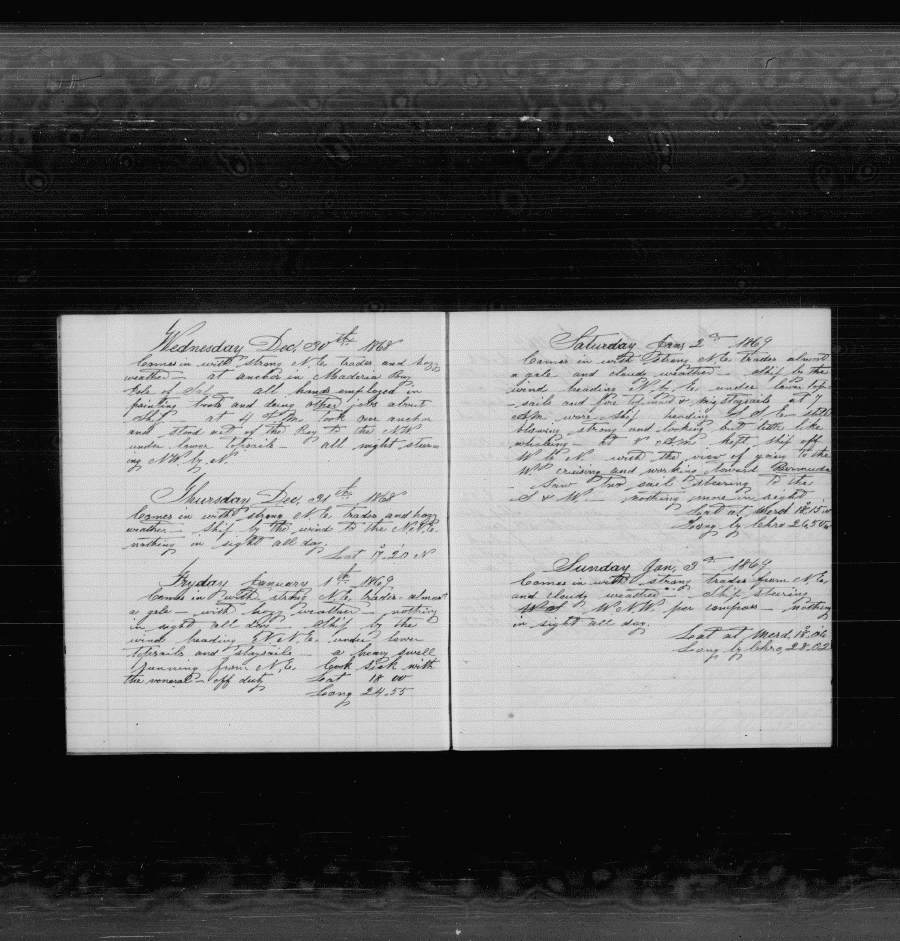 Wednesday Dec, 30th 1868
Comes in with strong N,E, trades and hazy
weather — at anchor in Maderia Bay
Isle Sal — all hands employed in
painting boats and doing other jobs about
ship — at 4 P.M. took our anchor
and stood out of the Bay to the N.W.
under lower topsails — all night steer-
ing N.W. by N.
Thursday Dec, 31th 1868
Comes in with strong N.E. trades, and hazy
weather — Ship by the wind to the N.N.E.
nothing in sight all day.
Lat 17.20 N
Fryday January 1th 1869
Comes in with strong N.E. trades - almost
a gale — with hazy weather — nothing
in sight all day — ship by the
wind heading N.N.E. under lower
topsails and staysails — a heavy swell
running from N,E, Cook sick with
the veneral — off duty Lat 18 00
Long 24.55
Saturday Jany 2nd 1869
Comes in with strong N.E. trades almost
a gale and cloudy weather — ship by the
wind heading N by E under lower top-
sails and fore topmast & mizstaysails at 7
A.M. wore ship heading S E still
blowing strong and looking but little like
whaling — at 8 A.M. kept ship off
W by N with the view of going to the
Wd cruising and working toward Bermuda
— Saw two sail steering to the
S & W nothing more in sight
Lat at Merd 18.15
Long by Chro 26.50
Sunday Jan, 3rd 1869
Comes in with strong trades from N.E,
and cloudy weather — Ship steering
WNW per compass — nothing
in sight all day.
Lat at Merd, 18.06
Long by Chro, 28.02